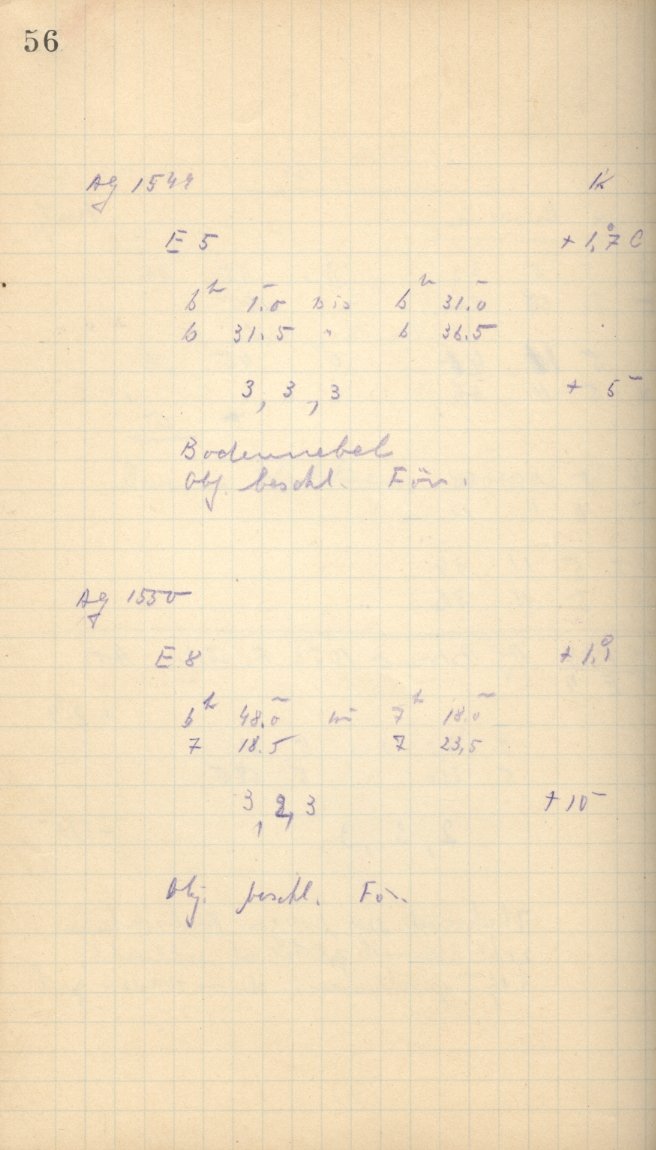 56
Ag 1549 K
E 5 + 1,°7 C
6h 1m.0 bis 6h 31m.0
6 31.5 " 6 36.5
3, 3, 3 + 5m
Bodennebel
Obj. beschl. Fön.
Ag 1550
E 8 + 1,°1
6h 48m.0 bis 7h 18m.0
7 18.5 7 23,5
3, 2, 3 + 10m
Obj. beschl. Fön.